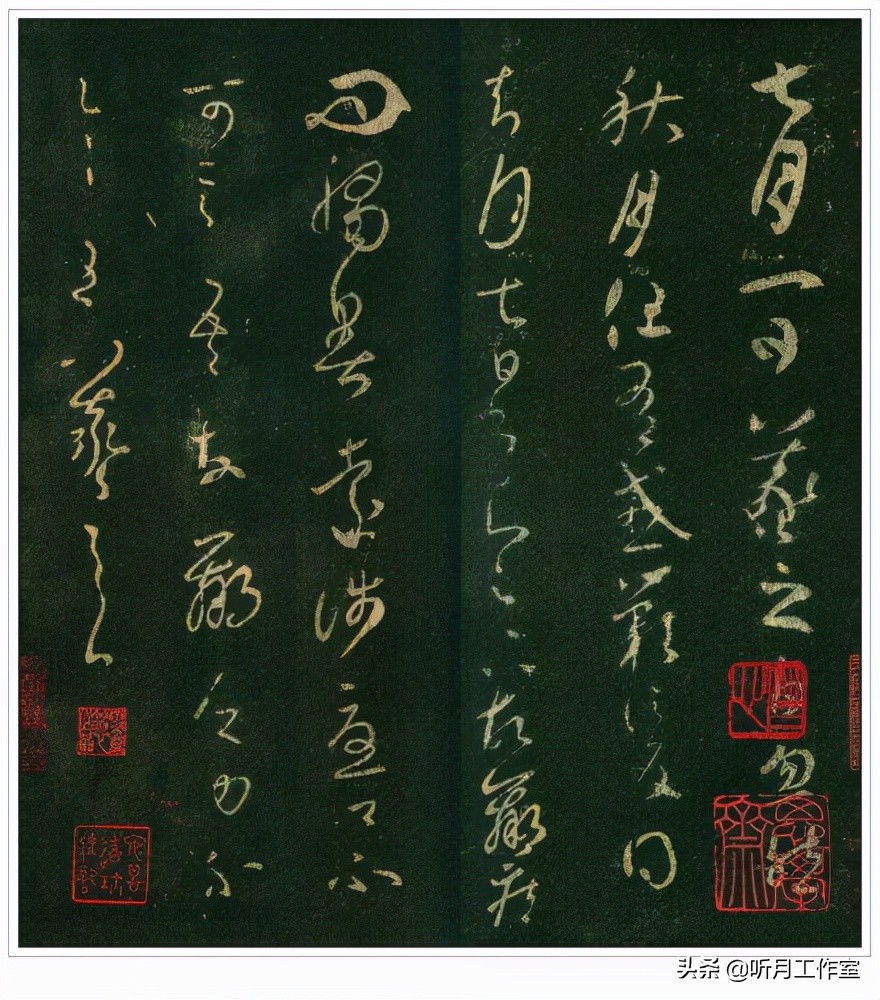 七月一日羲之白忽然
秋月但有感歎信反得
去月七日書知足下故羸疾
問觸暑遠涉憂卿不
可言吾故羸乏力不
一一王羲之白
头条 @听月工作室